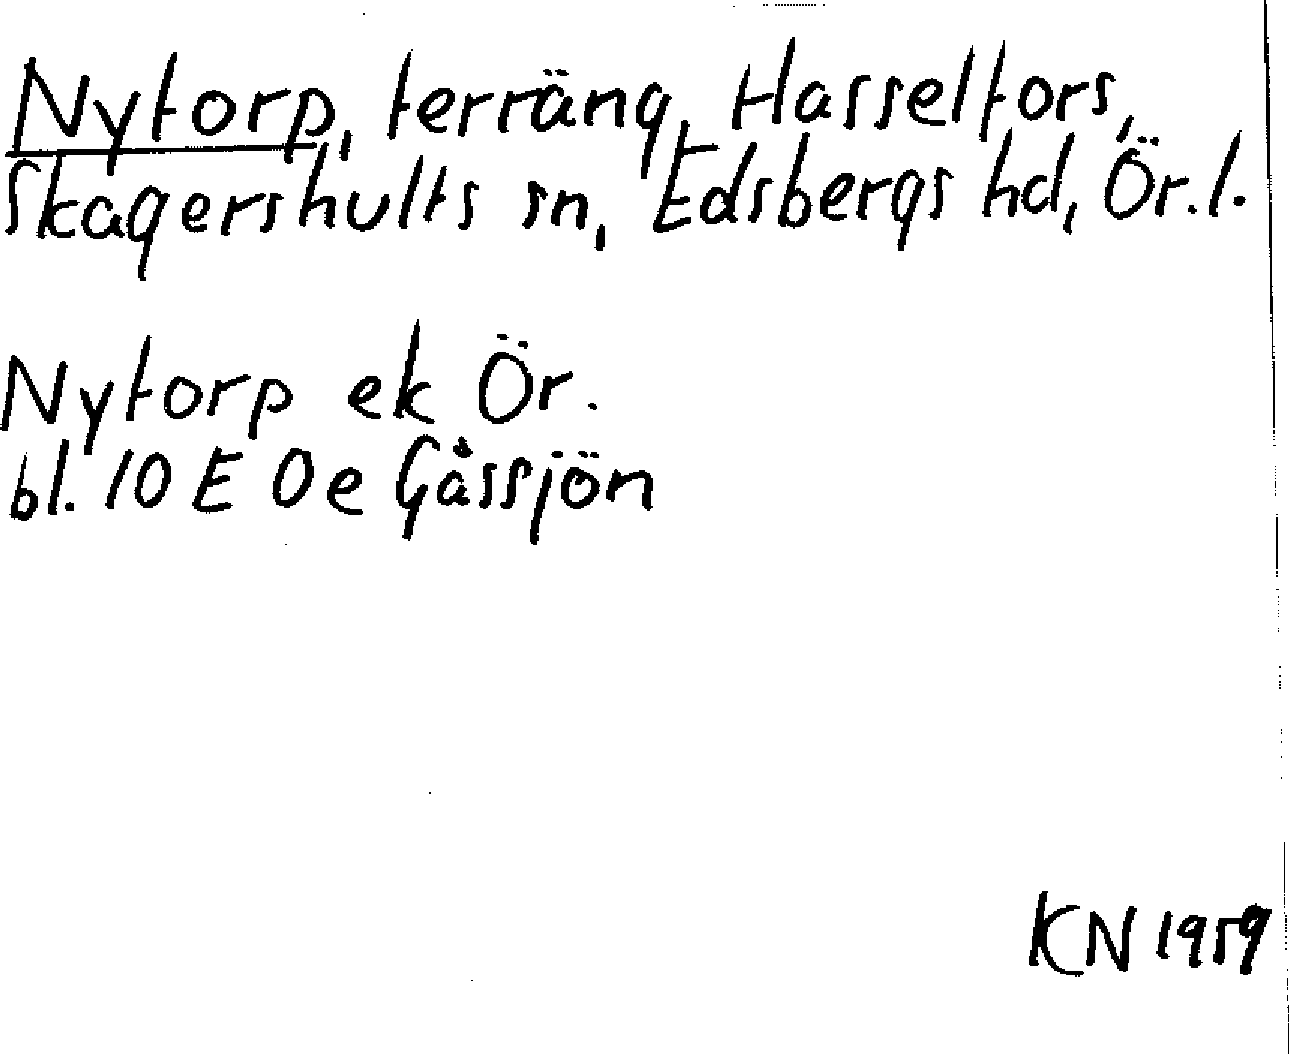 Nytorp, terräng, Hasselfors,
Skagershults sn, Edsbergs hd, Ör.l.
Nytorp ek Ör.
bl. 10 E 0e Gåssjön
KN 1959